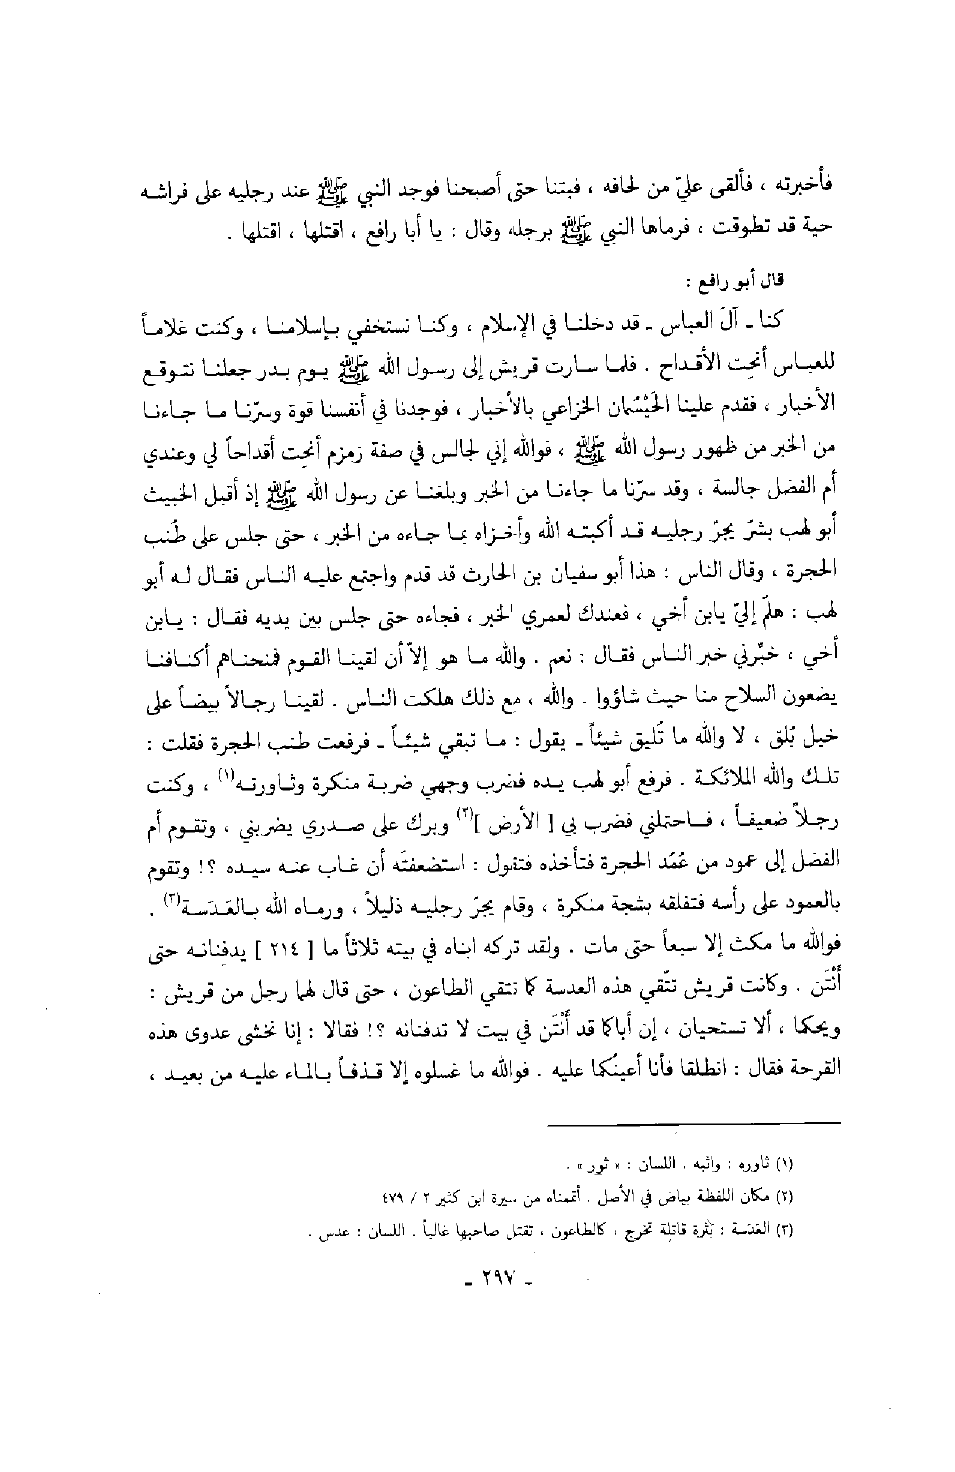 فأخبرته ، فألقى عليّ من لحافه ، فبتنا حتى أصبحنا فوجد النبي ﷺ عند رجليه على فراشه
حية قد تطوقت ، فرماها النبي ﷺ برجله وقال : يا أبا رافع ، اقتلها ، اقتلها .
قال أبو رافع :
كنا ـ آل العباس ـ قد دخلنا في الإسلام ، وكنا نستخفي بإسلامنا ، وكنت غلاماً
للعباس أنحِت الأقداح . فلما سارت قريش إلى رسول الله ﷺ يوم بدر جعلنا نتوقع
الأخبار ، فقدم علينا الحَيْسُمان الخزاعي بالأخبار ، فوجدنا في أنفسنا قوة وسرّنا ما جاءنا
من الخبر من ظهور رسول الله ﷺ ، فوالله إني لجالس في صفة زمزم أنحِت أقداحاً لي وعندي
أم الفضل جالسة ، وقد سرّنا ما جاءنا من الخبر وبلغنا عن رسول الله ﷺ إذ أقبل الخبيث
أبو لهب بشرّ يجرّ رجليه قد أكبته الله وأخزاه بما جاءه من الخبر ، حتى جلس على طُنب
الحجرة ، وقال الناس : هذا أبو سفيان بن الحارث قد قدم واجتمع عليه الناس فقال له أبو
لهب : هلمّ إليّ يابن أخي ، فعندك لعمري الخبر ، فجاءه حتى جلس بين يديه فقال : يابن
أخي ، خبّرني خبر الناس فقال : نعم . والله ما هو إلاّ أن لقينا القوم فمنحناهم أكتافنا
يضعون السلاح منا حيث شاؤوا . والله ، مع ذلك هلكت الناس . لقينا رجالاً بيضاً على
خيل بُلق ، لا والله ما تُليق شيئاً ـ يقول : ما تبقي شيئاً ـ فرفعت طنب الحجرة فقلت :
تلك والله الملائكة . فرفع أبو لهب يده فضرب وجهي ضربة منكرة وثاورته(١) ، وكنت
رجلاً ضعيفاً ، فاحتملني فضرب بي [ الأرض ](٢) وبرك على صدري يضربني ، وتقوم أم
الفضل إلى عمود من عُمُد الحجرة فتأخذه فتقول : استضعفتَه أن غاب عنه سيده ؟! وتقوم
بالعمود على رأسه فتفلقه بشجة منكرة ، وقام يجرّ رجليه ذليلاً ، ورماه الله بالعَدَسة(٣) .
فوالله ما مكث إلا سبعاً حتى مات . ولقد تركه ابناه في بيته ثلاثاً ما [ ٢١٤ ] يدفنانه حتى
أنْتَن . وكانت قريش تتّقي هذه العدسة كما تتقي الطاعون ، حتى قال لهما رجل من قريش :
ويحكما ، ألا تستحيان ، إن أباكما قد أنْتَن في بيت لا تدفنانه ؟! فقالا : إنا نخشى عدوى هذه
القرحة فقال : انطلقا فأنا أعينُكما عليه . فوالله ما غسلوه إلا قذفاً بالماء عليه من بعيد ،
(١) ثاوره : واثبه . اللسان : « ثور » .
(٢) مكان اللفظة بياض في الأصل . أتممناه من سيرة ابن كثير ٢ / ٤٧٩
(٣) العَدَسة : بَثْرة قاتلة تخرج ، كالطاعون ، تقتل صاحبها غالباً . اللسان : عدس .
ـ ٢٩٧ ـ